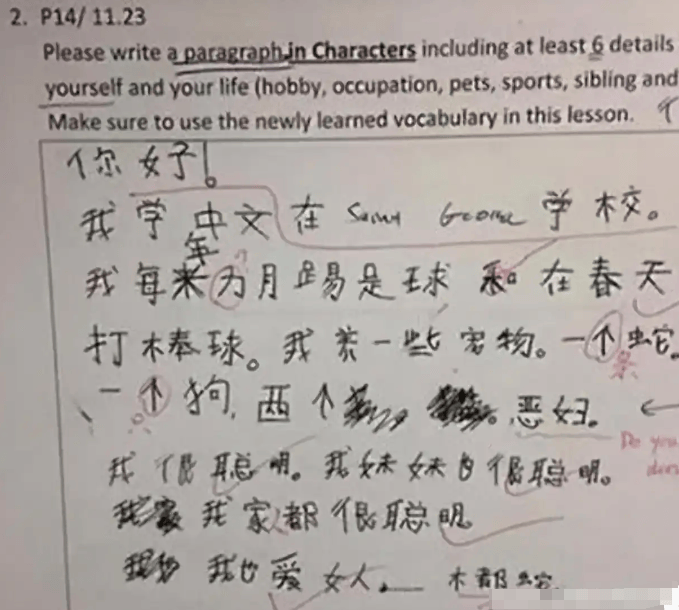 2. P14/ 11.23
Please write a paragraph in Characters including at least 6 details
yourself and your life (hobby, occupation, pets, sports, sibling and
Make sure to use the newly learned vocabulary in this lesson.
你好!
我学中文在 学校。
年
我每 月踢是球和在春天
打棒球。我养一些宠物。一个蛇。
一个狗,两个 恶妇。
Do you
我很聪明。我妹妹也很聪明。
我家都很聪明
我也爱女人。 木都蛇